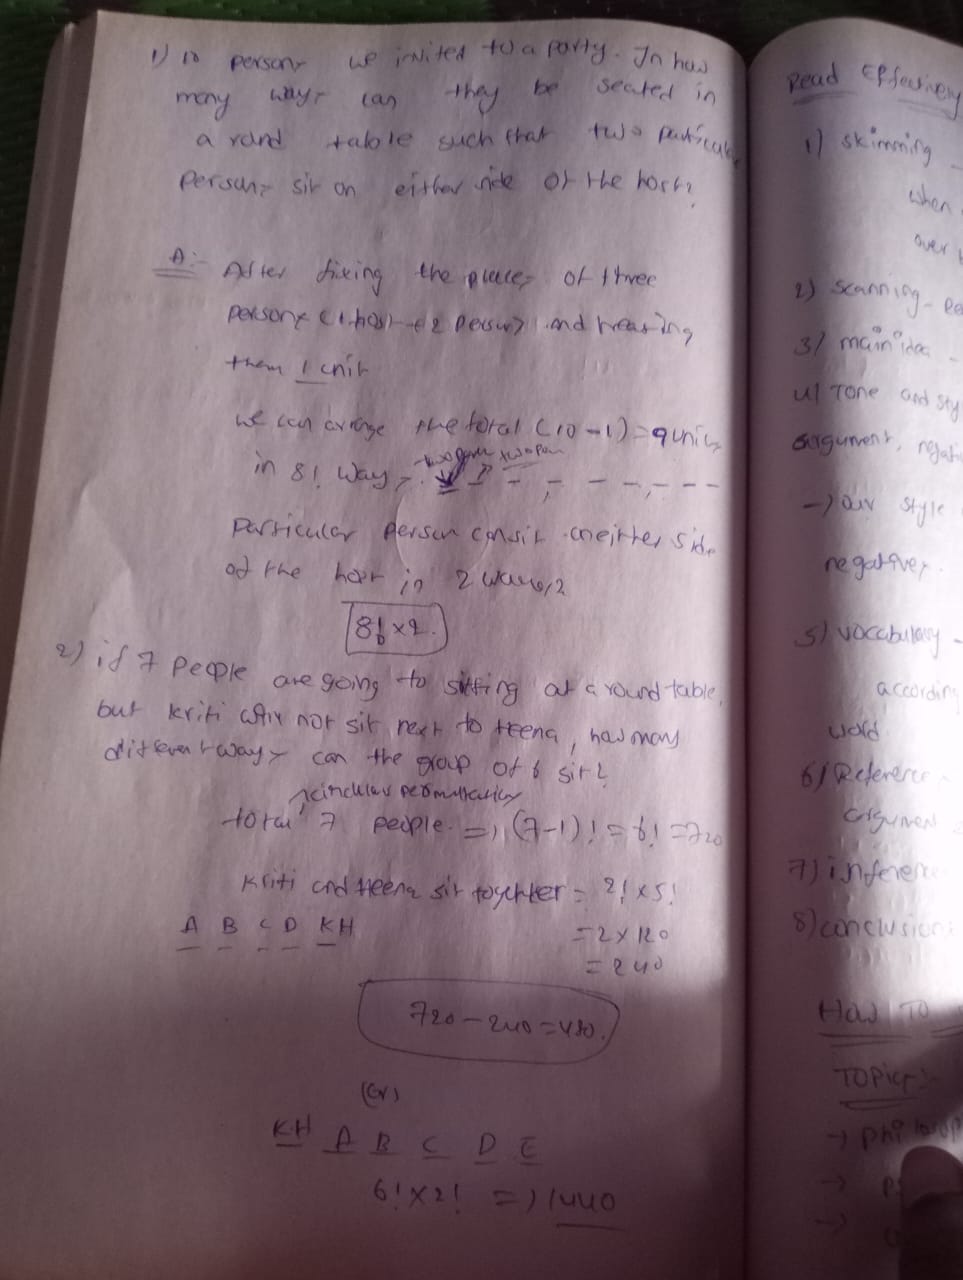 1) 10 persons we invited to a party. In how
many ways can they be seated in
a round table such that two particular
persons sit on either side of the host?
A:- After fixing the places of three
persons (1 host + 2 persons) and treating
them 1 unit
we can arrange the total (10-1) = 9 units
in 8! ways
particular person can sit on either side
of the host in 2 ways
8! x 2.
2) if 7 people are going to sitting at a round table,
but kriti will not sit next to Heena, how many
different ways can the group of 6 sit?
circular permutation
total 7 people => (7-1)! = 6! = 720
Kriti and Heena sit together = 2! x 5!
A B C D KH = 2 x 120
= 240
720 - 240 = 480.
(or)
KH A B C D E
6! x 2! => 1440
Read Effectively
1) skimming
when
over
2) scanning -
3) main idea -
4) Tone and
argument,
-> our style
negative,
5) vocabulary -
according
word
6) Reference -
argument
7) inference
8) conclusion
How TO
TOPICS:-
->
->
->